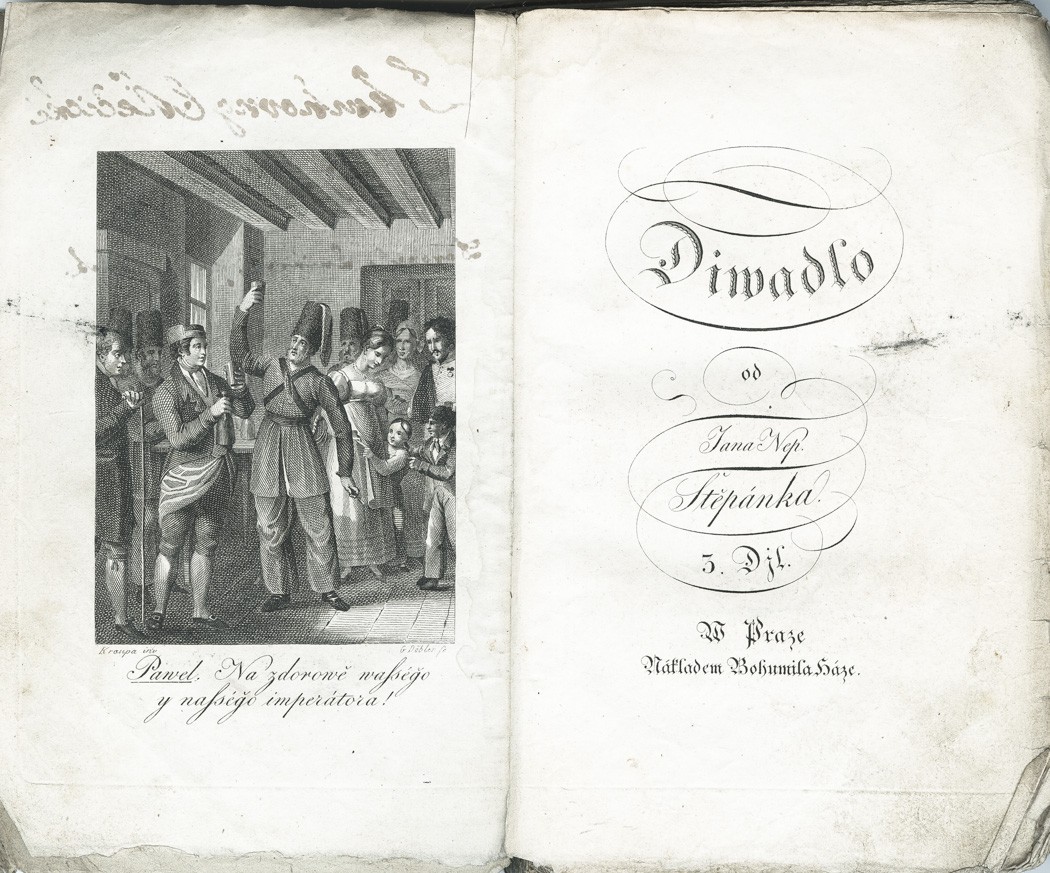 Kroupa inv
G Döbler sc
Pawel. Na zdorowě waſſégo
y naſſégo imperátora!
Diwadlo
od
Jana Nep.
Štěpánka.
3. Djl.
W Praze
Nákladem Bohumila Háze.